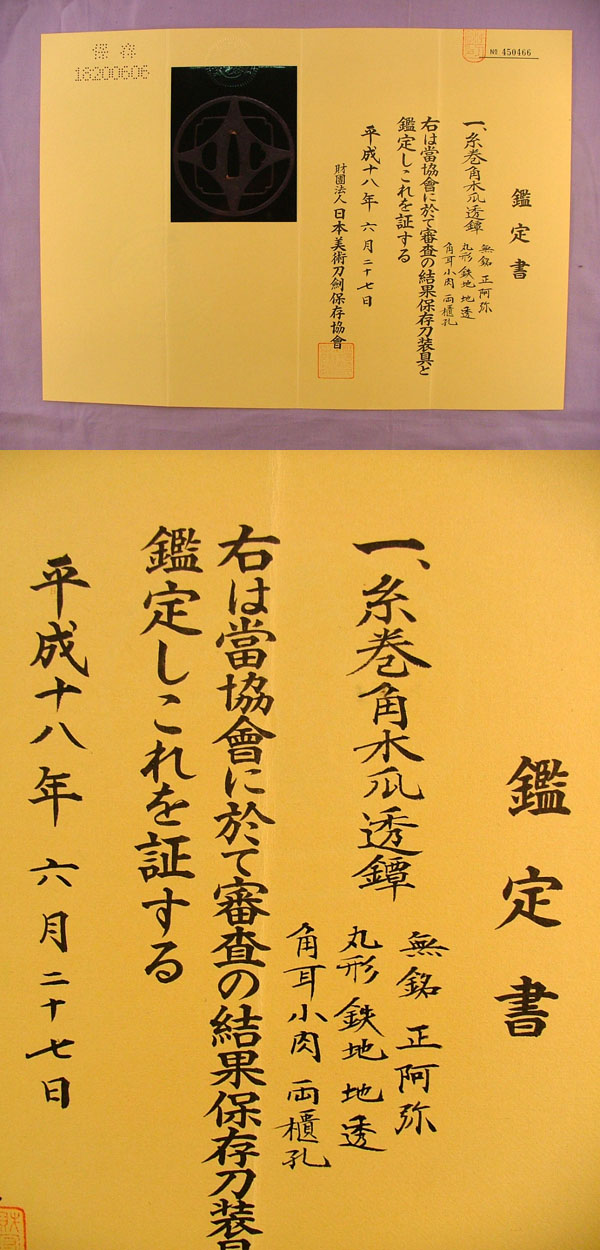 保存
18200606
№ 450466
鑑定書
一、糸巻角木瓜透鐔
無銘 正阿弥
丸形 鉄地 地透
角耳小肉 両櫃孔
右は當協會に於て審査の結果保存刀装具と
鑑定しこれを証する
平成十八年 六月二十七日
財團法人 日本美術刀劍保存協會
鑑定書
一、糸巻角木瓜透鐔
無銘 正阿弥
丸形 鉄地 地透
角耳小肉 両櫃孔
右は當協會に於て審査の結果保存刀装具
鑑定しこれを証する
平成十八年 六月二十七日